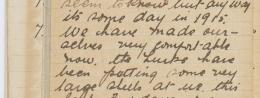 seem to know but any way
its some day in 1915.
7. We have made our-
selves very comfortable
now. the turks have
been putting some very
large shells at us. this